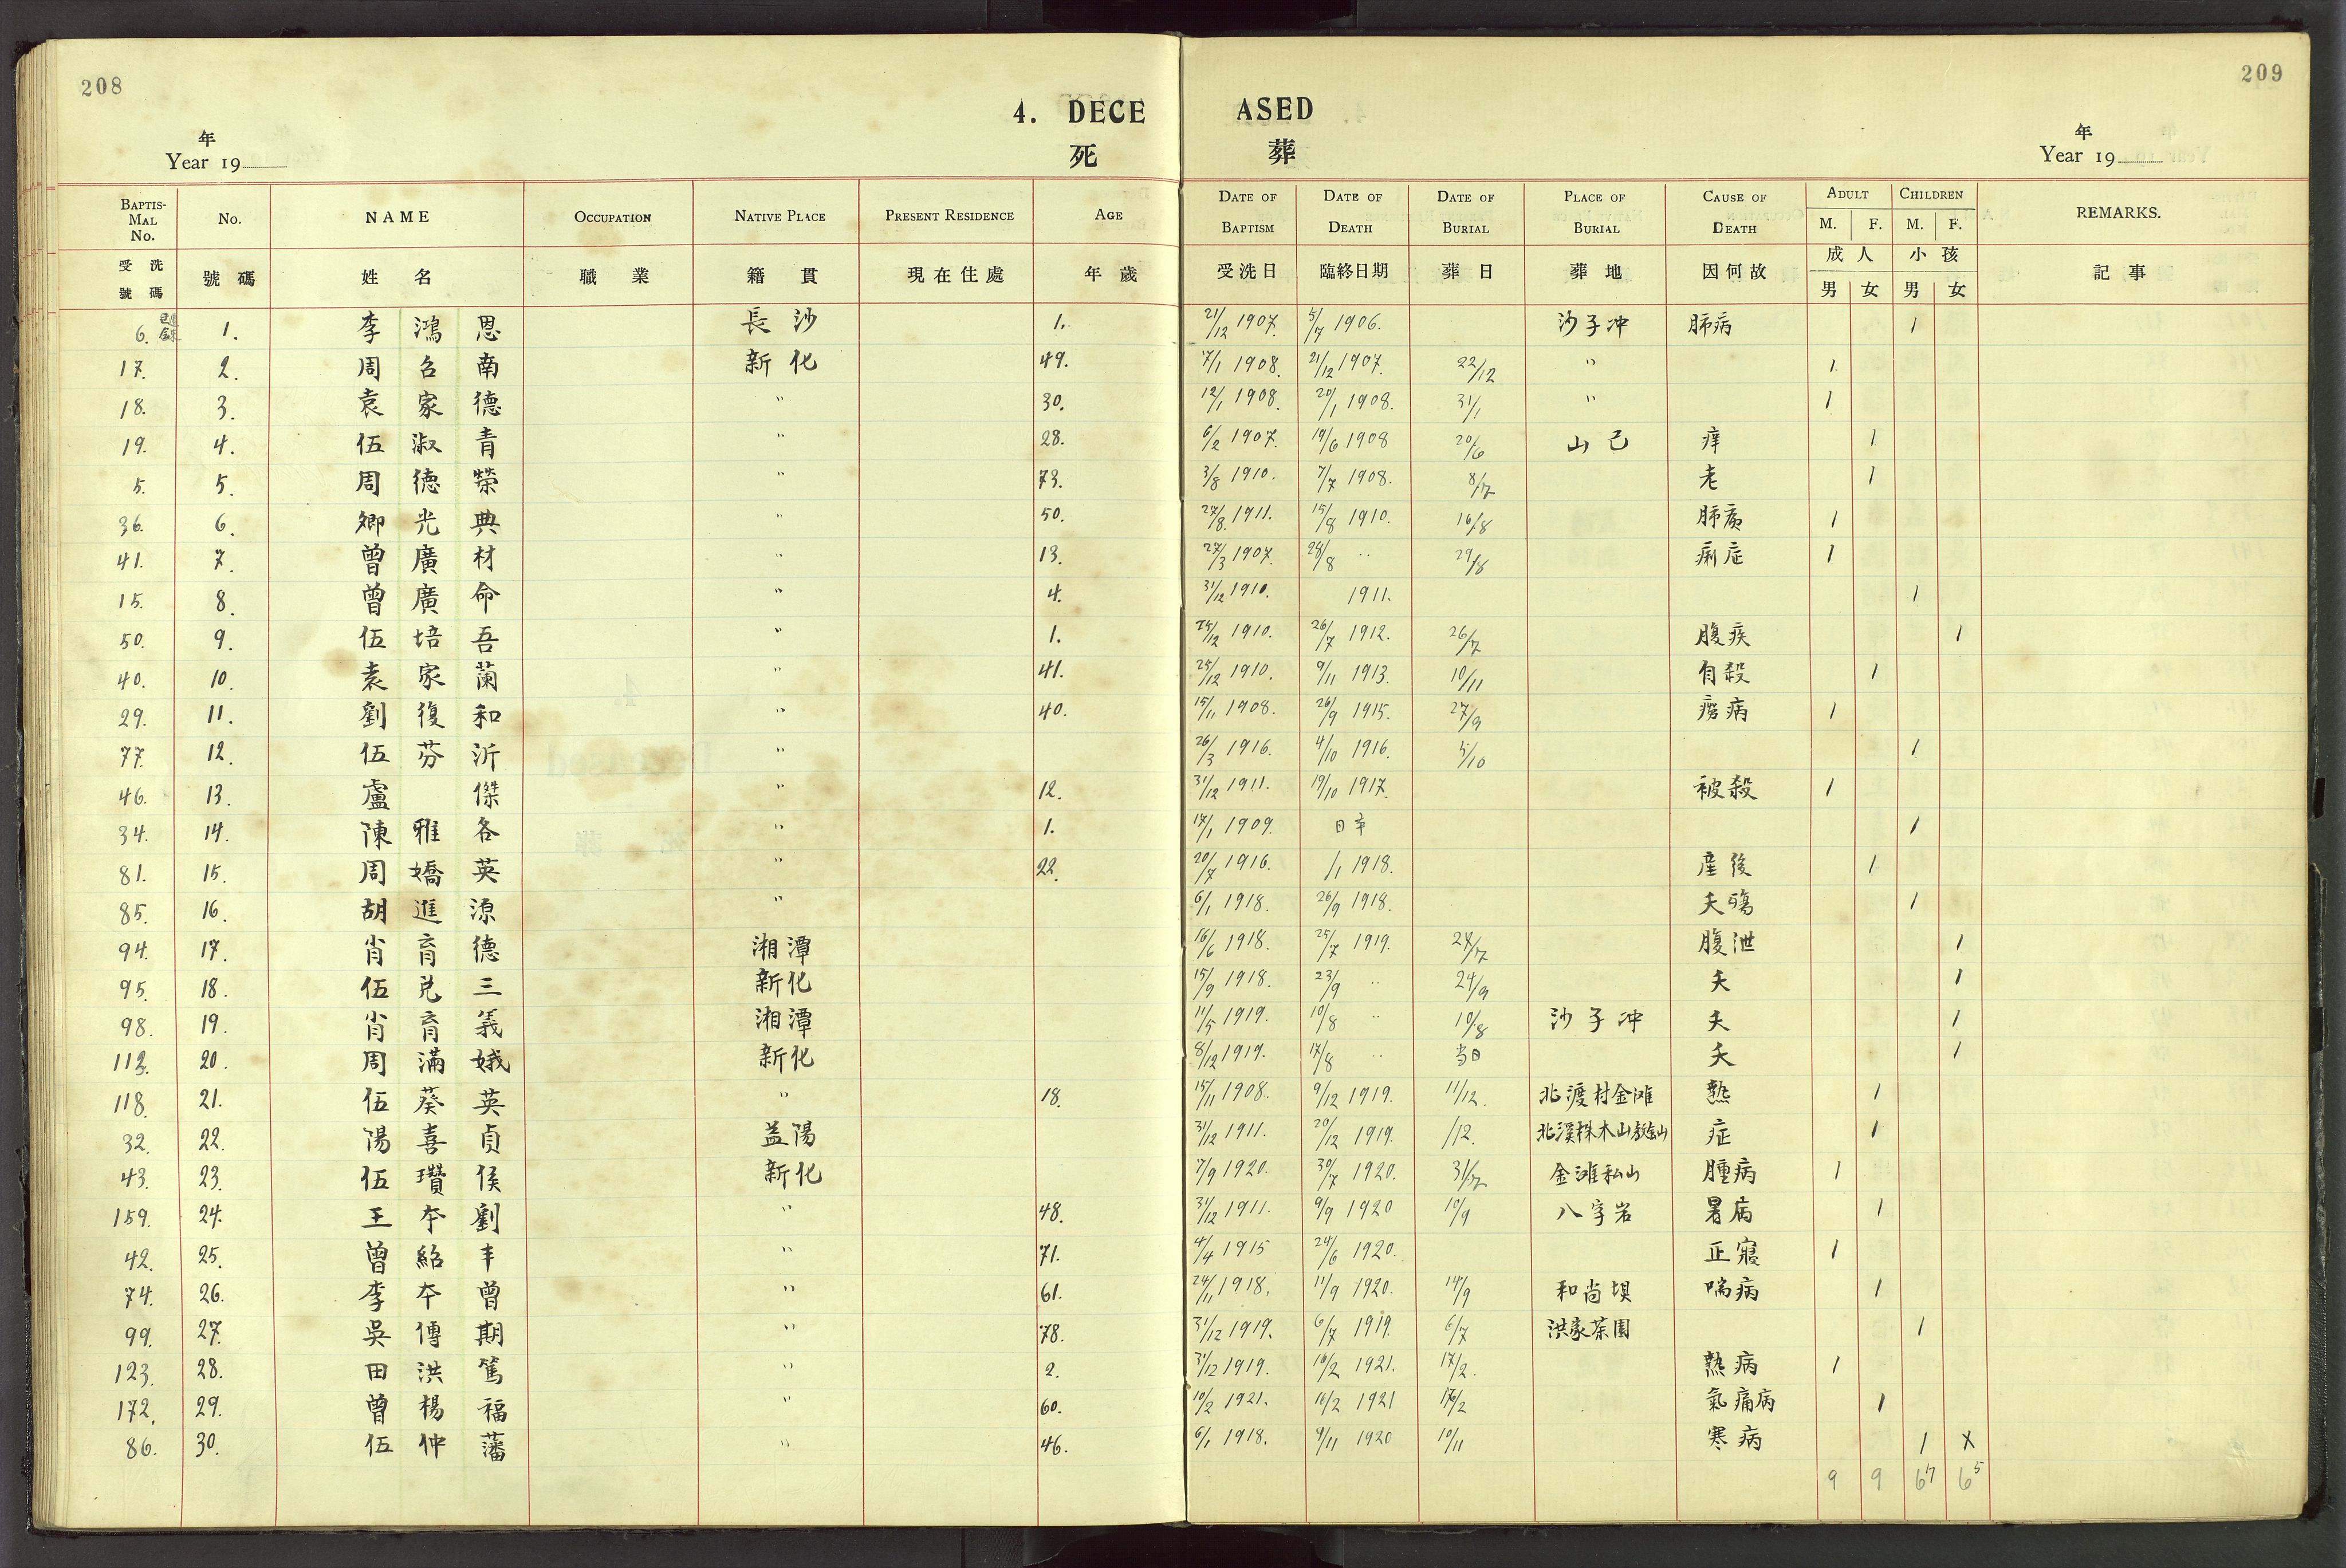 208
209
4. DECEASED
死 葬
年
Year 19
年
Year 19
BAPTISMAL No. No. NAME OCCUPATION NATIVE PLACE PRESENT RESIDENCE AGE DATE OF BAPTISM DATE OF DEATH DATE OF BURIAL PLACE OF BURIAL CAUSE OF DEATH ADULT M. F. CHILDREN M. F. REMARKS.
受洗號碼 號碼 姓名 職業 籍貫 現在住處 年歲 受洗日 臨終日期 葬日 葬地 因何故 成人 男 女 小孩 男 女 記事
6. 1. 李鴻恩 長沙 1. 21/12 1907. 5/7 1906. 沙子冲 肺病 1
17. 2. 周名南 新化 49. 7/1 1908. 21/12 1907. 22/12 " 1.
18. 3. 袁家德 " 30. 12/1 1908. 20/1 1908. 31/1 " 1
19. 4. 伍淑青 " 28. 6/2 1907. 19/6 1908 20/6 山己 痒 1
5. 5. 周德榮 " 73. 3/8 1910. 7/7 1908. 8/7 老 1
36. 6. 卿光典 " 50. 27/8. 1911. 15/8 1910. 16/8 肺病 1
41. 7. 曾廣材 " 13. 27/3 1907. 28/8 " 29/8 痢症 1
15. 8. 曾廣命 " 4. 31/12 1910. 1911. 1
50. 9. 伍培吾 " 1. 25/12 1910. 26/7 1912. 26/7 腹疾 1
40. 10. 袁家蘭 " 41. 25/12 1910. 9/11 1913. 10/11 自殺 1
29. 11. 劉復和 " 40. 15/11 1908. 26/9 1915. 27/9 癆病 1
77. 12. 伍芬沂 " 26/3 1916. 4/10 1916. 5/10 1
46. 13. 盧傑 " 12. 31/12 1911. 19/10 1917. 被殺 1
34. 14. 陳雅各 " 1. 17/1 1909. 1
81. 15. 周嬌英 " 22. 20/7 1916. /1 1918. 産後 1
85. 16. 胡進源 " 6/1 1918. 26/9 1918. 夭殤 1
94. 17. 肖育德 湘潭 16/6 1918. 25/7 1919. 27/7 腹泄 1
95. 18. 伍兑三 新化 15/9 1918. 23/9 " 24/9 夭 1
98. 19. 肖育義 湘潭 11/5 1919. 10/8 " 10/8 沙子冲 夭 1
113. 20. 周滿娥 新化 8/12 1919. 17/8 " 当日 夭 1
118. 21. 伍葵英 " 18. 15/11 1908. 9/12 1919. 11/12. 北渡村金滩 熱 1
32. 22. 陽喜貞 益陽 31/12 1911. 20/12 1919. /12. 北溪株木山 症 1
43. 23. 伍瓚侯 新化 7/9 1920. 30/7 1920. 31/7 金滩私山 腫病 1
159. 24. 王夲劉 " 48. 31/12 1911. 9/9 1920 10/9 八字岩 暑病 1
42. 25. 曾紹丰 " 71. 4/4 1915 24/6 1920. 正寢 1
74. 26. 李夲曾 " 61. 24/11 1918. 11/9 1920. 14/9 和尚垻 喘病 1
99. 27. 吳傳期 " 78. 31/12 1919. 6/7 1919. 6/7 洪家茶園 1
123. 28. 田洪篤 " 2. 31/12 1919. 16/2 1921. 17/2. 熱病 1
172. 29. 曾楊福 " 60. 10/2 1921. 16/2 1921 17/2 氣痛病 1
86. 30. 伍仲藩 " 46. 6/1 1918. 9/11 1920 10/11 寒病 1 X
9 9 6 7 6 5